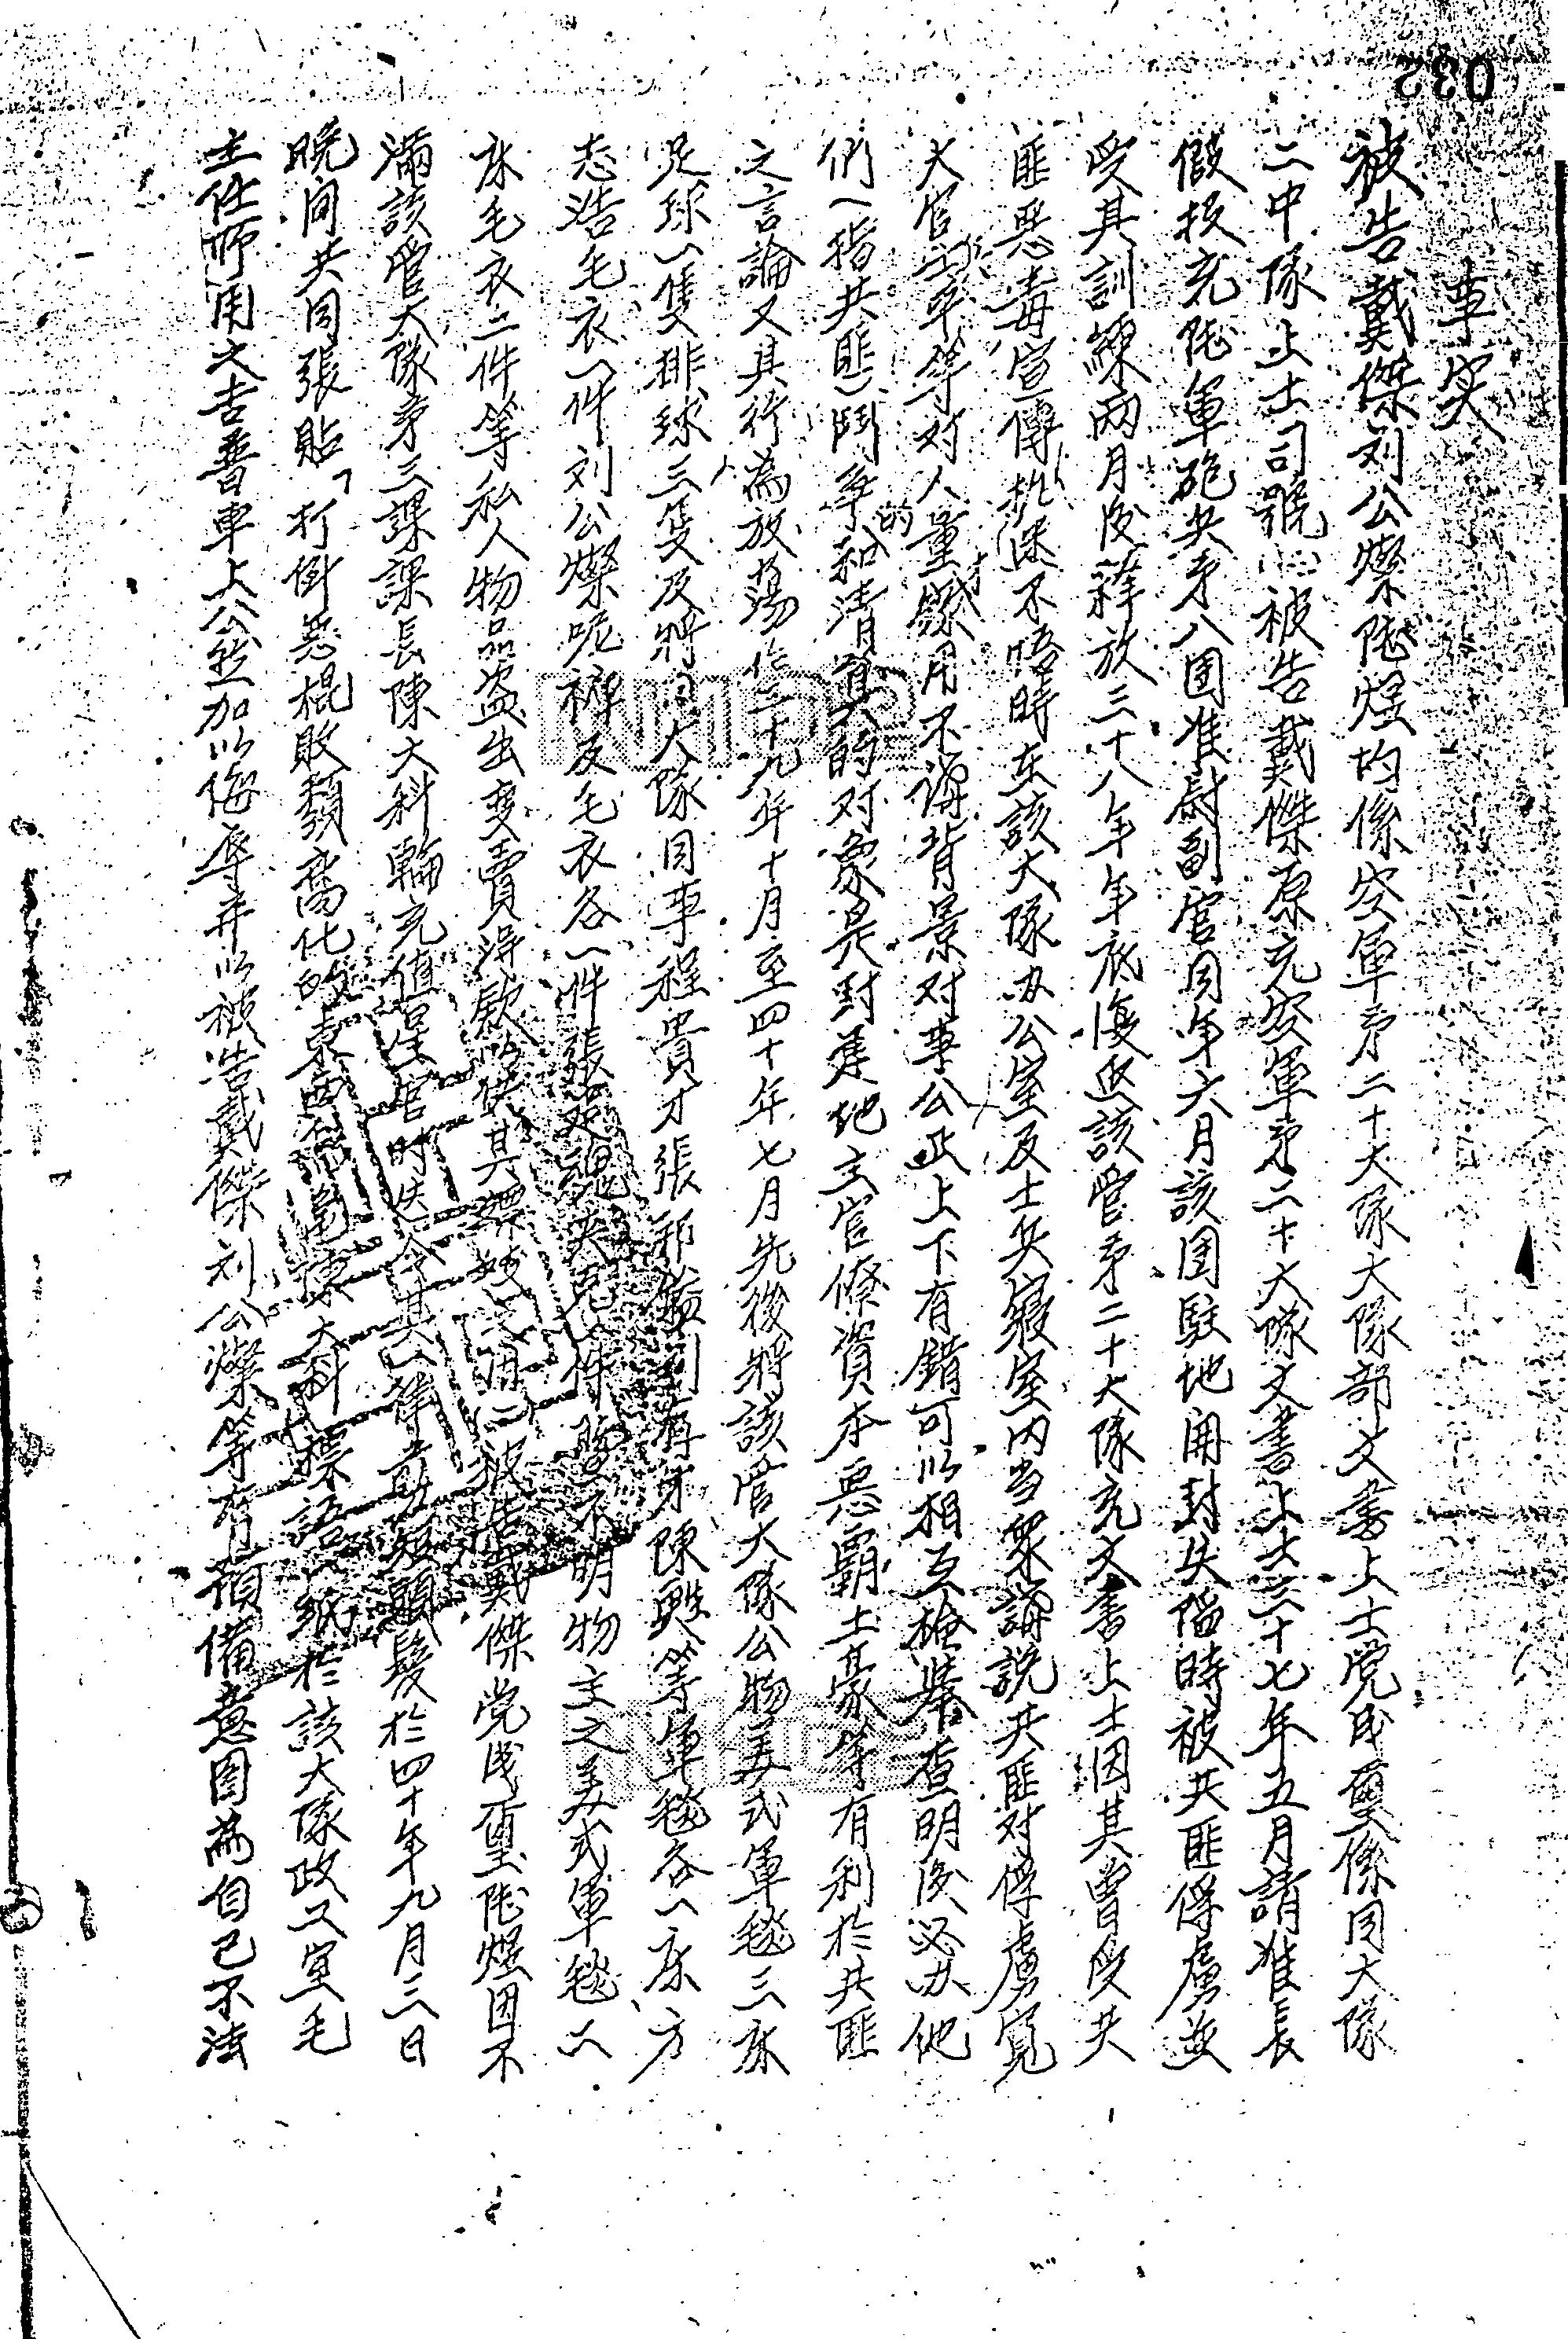 032
事实
被告戴傑刘公燦陸煜均係空軍第二十大隊大隊部文書上士党成璽係同大隊
二中隊上士司號被告戴傑原充空軍第二十大隊文書上士三十七年五月請准長
假投充陸軍砲兵第八团准尉副官同年六月該团駐地開封失陷時被共匪俘虜並
受其訓練兩月後釋放三十八年年底復返該管第二十大隊充文書上士因其曾受共
匪惡毒宣傳执迷不悟時在該大隊办公室及士兵寢室內当眾講說共匪对俘虜寬
大官士平等对人量才錄用不講背景对事公正上下有錯可以相互檢舉查明後必办他
們(指共匪)鬥爭和清算的对象是封建地主官僚資本惡霸土豪等有利於共匪
的
之言論又其行為放蕩於三十九年十月至四十年七月先後將該管大隊公物美式軍毯三床
足球一隻排球三隻及將同大隊同事程貴才張邦 刘 陳 等軍毯各一床方
志浩毛衣一件刘公燦呢褲及毛衣各一件張 夾克一件 不明物主之美式軍毯二
床毛衣二件等私人物品盜出变賣得欵以供其 被告戴傑党成璽陸煜因不
滿該管大隊第三課課長陳大科輪充值星官時迭令其 剪短頭髮於四十年九月三日
晚间共同張貼「打倒惡棍敗類腐化的東西 陳大科標語一紙於該大隊政工室毛
主任所用之吉普車上公然加以侮辱并以被告戴傑刘公燦等有預備意图為自己不法